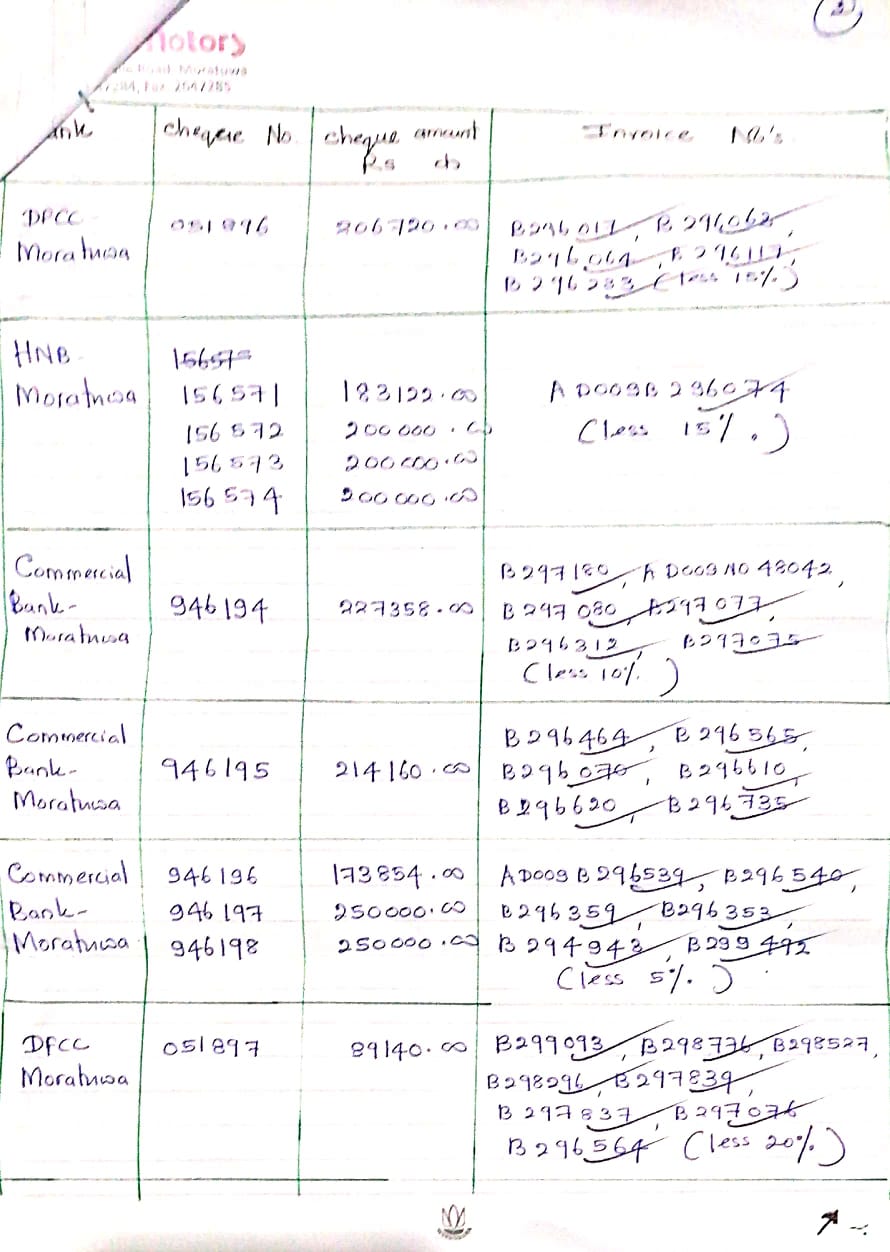 2
Motors
Road, Moratuwa
Fax 2647285
Bank Cheque No. Cheque amount Invoice No's
Rs cts
DFCC 051896 206720.00 B296017, B 296062,
Moratuwa B296064, B 296117,
B 296283 (less 15%)
HNB 156575
Moratuwa 156571 183122.00 AD009B 296074
156 572 200000.00 (less 15%.)
156573 200000.00
156574 200000.00
Commercial B297180, AD009 NO 48042,
Bank- 946194 227358.00 B297080, B297077,
Moratuwa B296312, B297075
(less 10%)
Commercial B296464, B296565,
Bank- 946195 214160.00 B296070, B296610,
Moratuwa B296620, B296735
Commercial 946196 173854.00 AD009 B296539, B296540,
Bank- 946197 250000.00 B296359, B296353,
Moratuwa 946198 250000.00 B294943, B299492
(less 5%.)
DFCC 051897 89140.00 B299093, B298776, B298527,
Moratuwa B298296, B297839,
B297837, B297076
B296564 (less 20%)